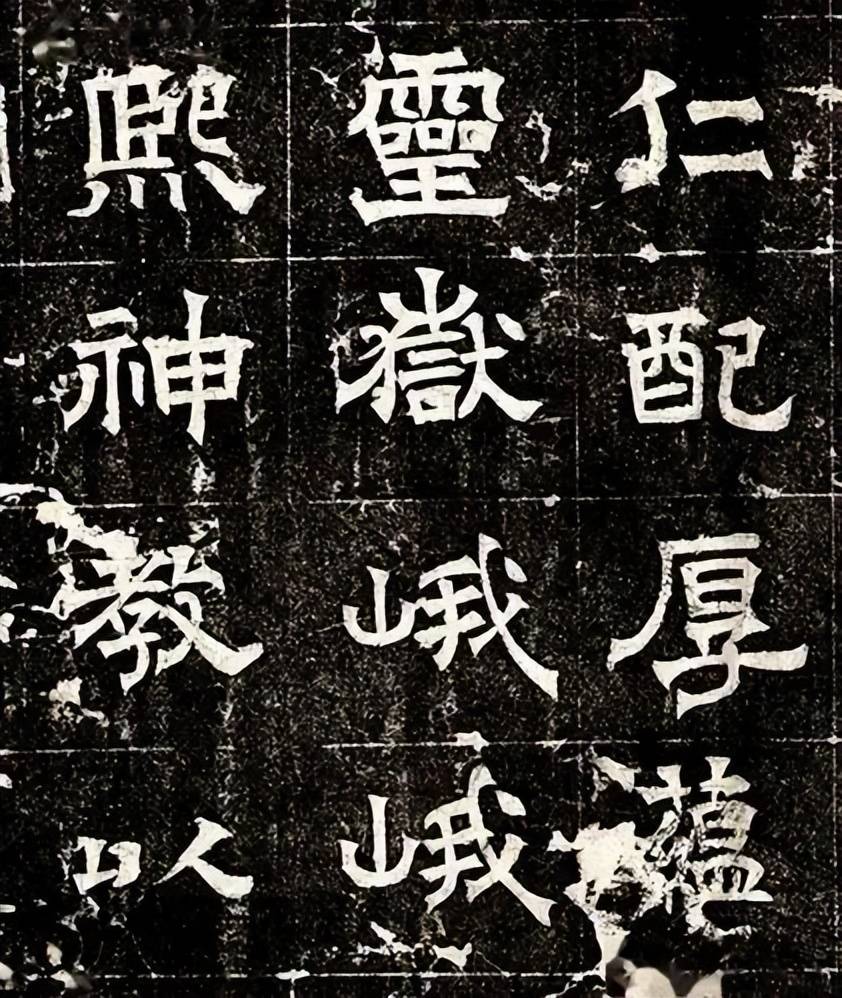 仁配厚蘊
靈嶽峨峨
熙神教以